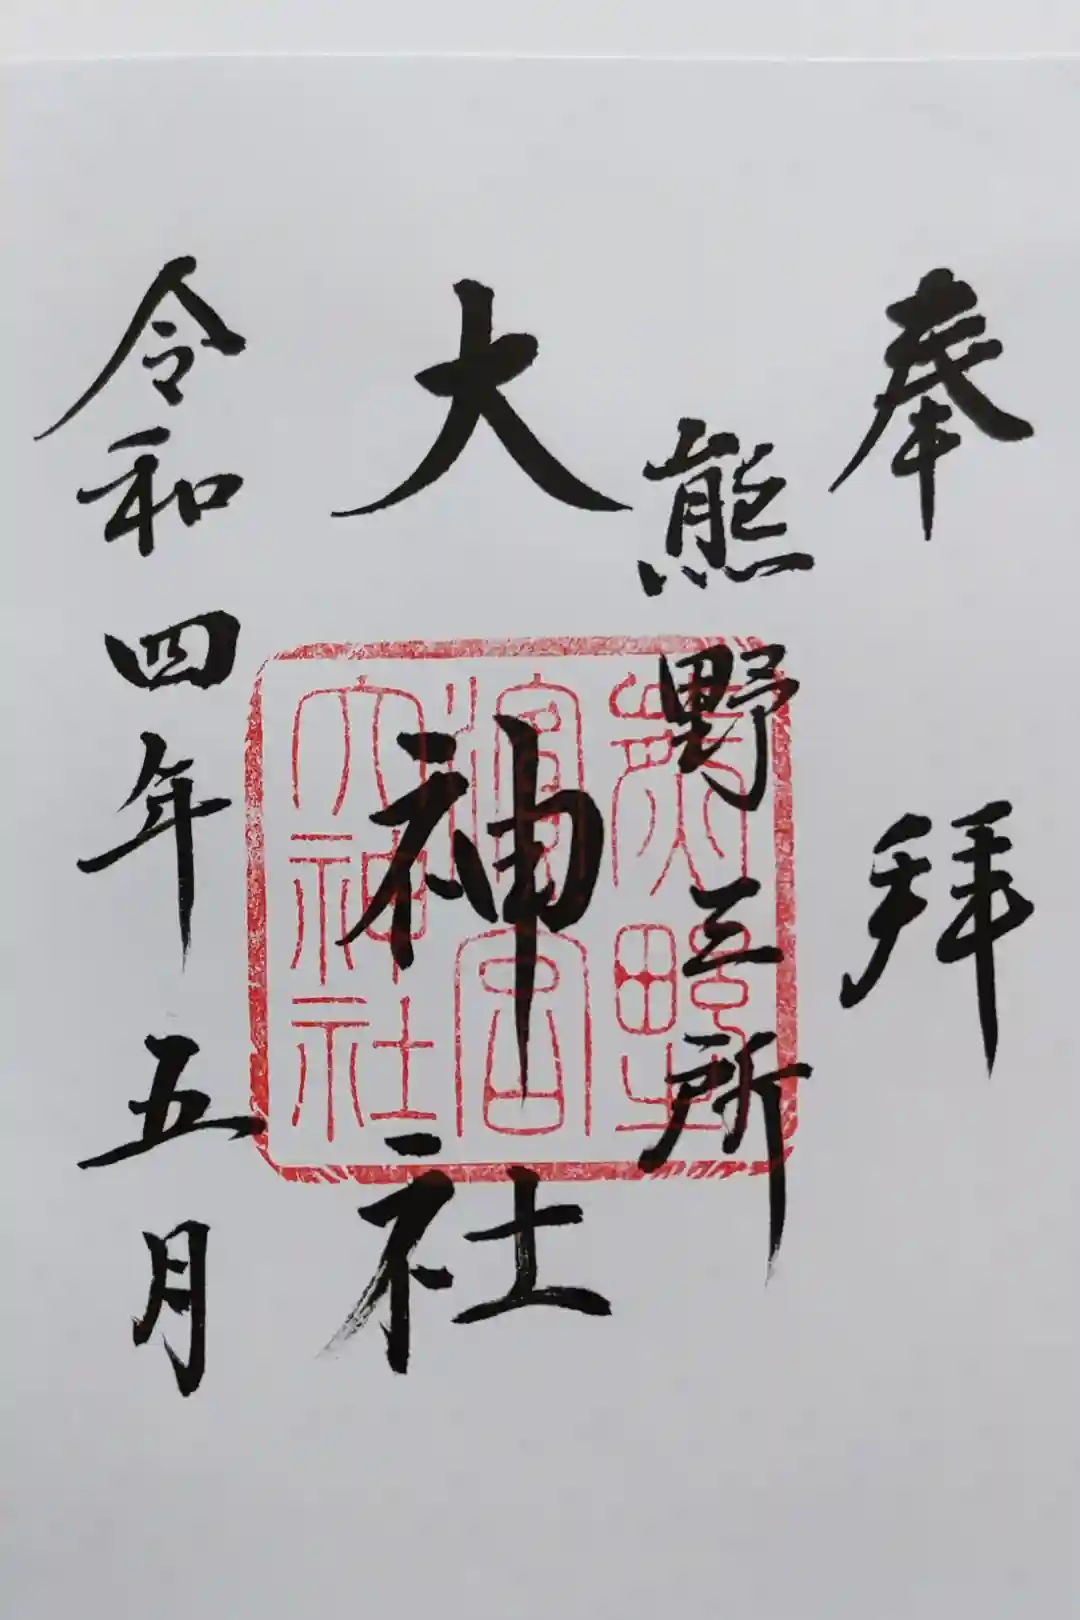 奉拜
熊野三所
大神社
令和四年五月
熊野
濱宮
大神社